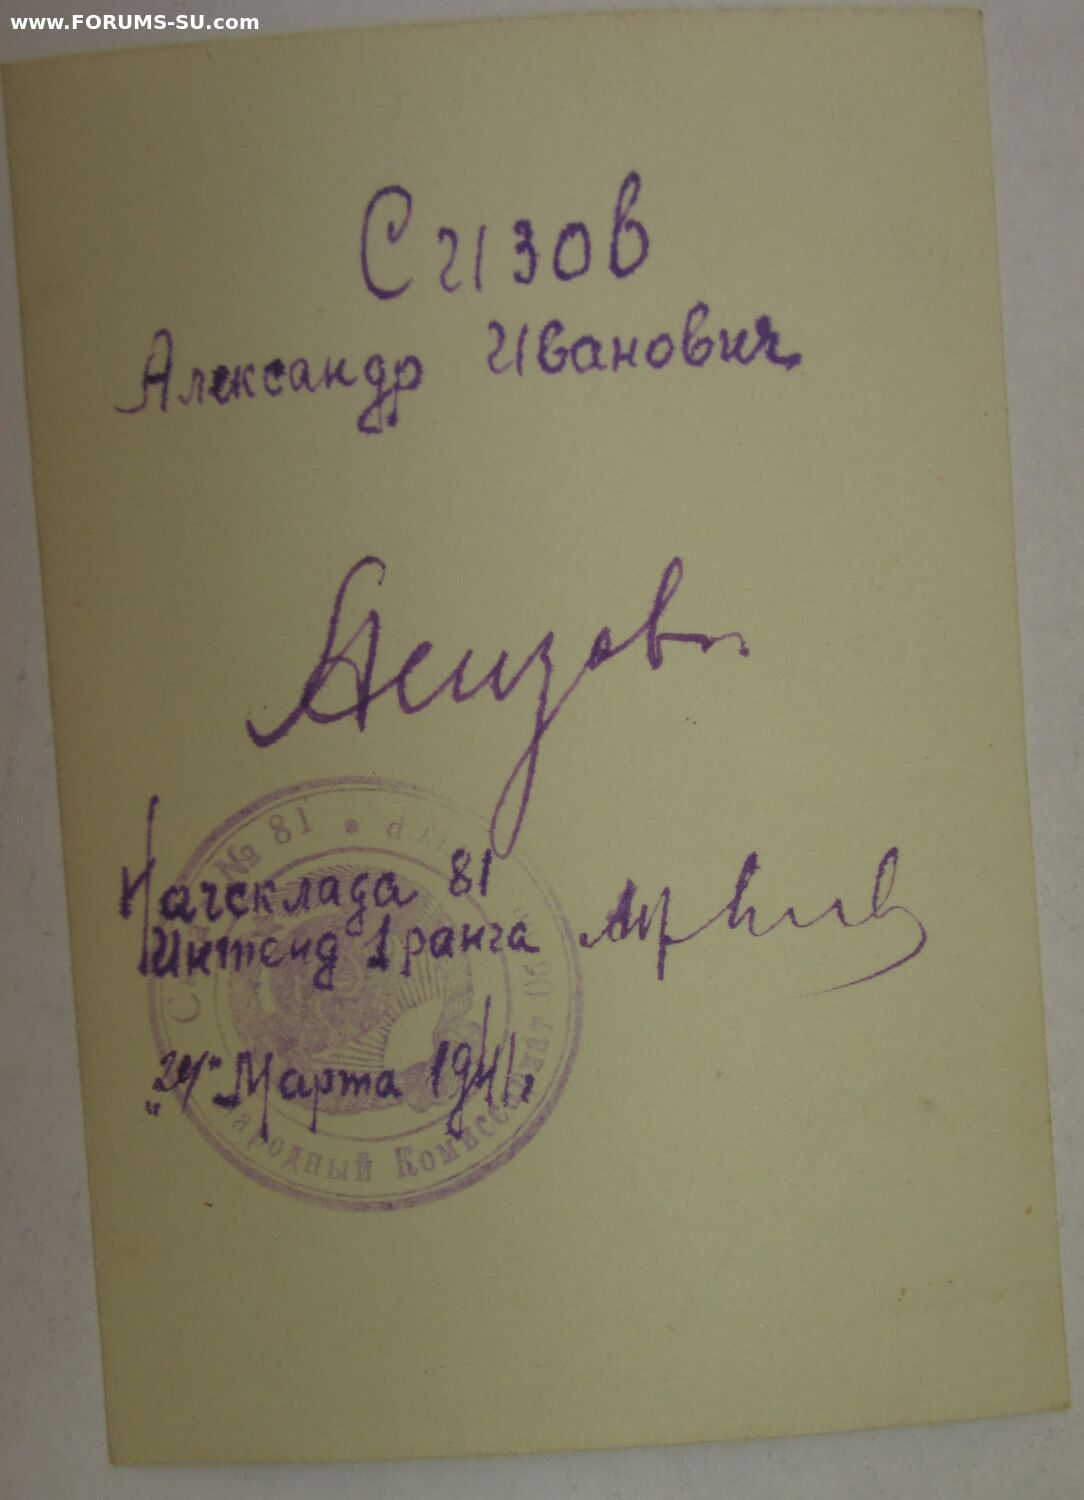 www.FORUMS-SU.com
Сизов
Александр Иванович
АСизов
№ 81
Начсклада 81
Интенд 1 ранга
„24" Марта 1941,
Народный Комиссариат Об